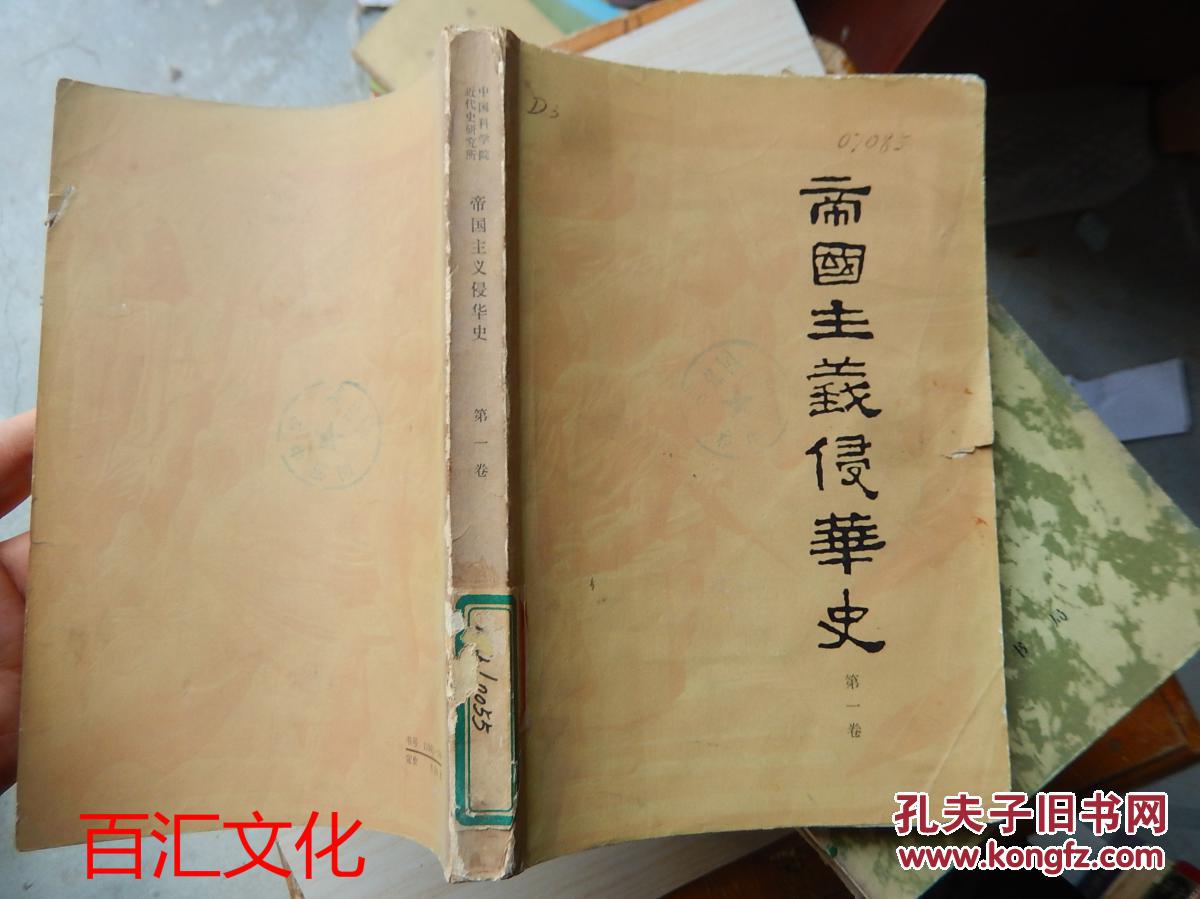 中国科学院
近代史研究所
帝国主义侵华史
第一卷
D3
07085
帝國主義侵華史
第一卷
书号
定价
百汇文化
孔夫子旧书网
www.kongfz.com